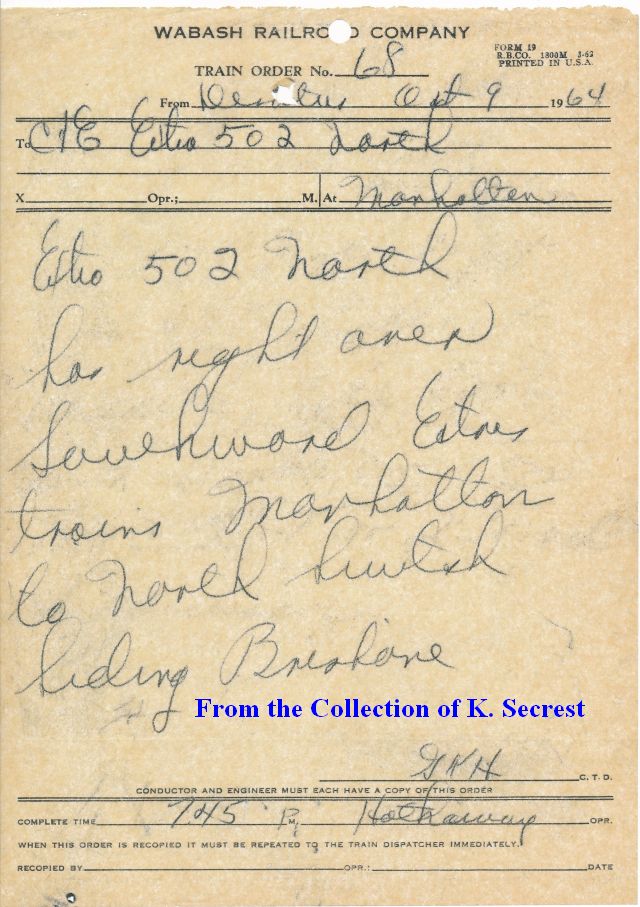 WABASH RAILROAD COMPANY
FORM 19
R.B.CO. 1800M 3-62
PRINTED IN U.S.A.
TRAIN ORDER No. 68
From Decatur Oct 9 1964
To C&E Extra 502 North
X Opr.; M. At Manhattan
Extra 502 North
has right over
Southward Extra
trains Manhattan
to North Switch
Siding Brisbane
From the Collection of K. Secrest
GKH C.T.D.
CONDUCTOR AND ENGINEER MUST EACH HAVE A COPY OF THIS ORDER
COMPLETE TIME 745 P M. Hathaway OPR.
WHEN THIS ORDER IS RECOPIED IT MUST BE REPEATED TO THE TRAIN DISPATCHER IMMEDIATELY.
RECOPIED BY OPR.: DATE